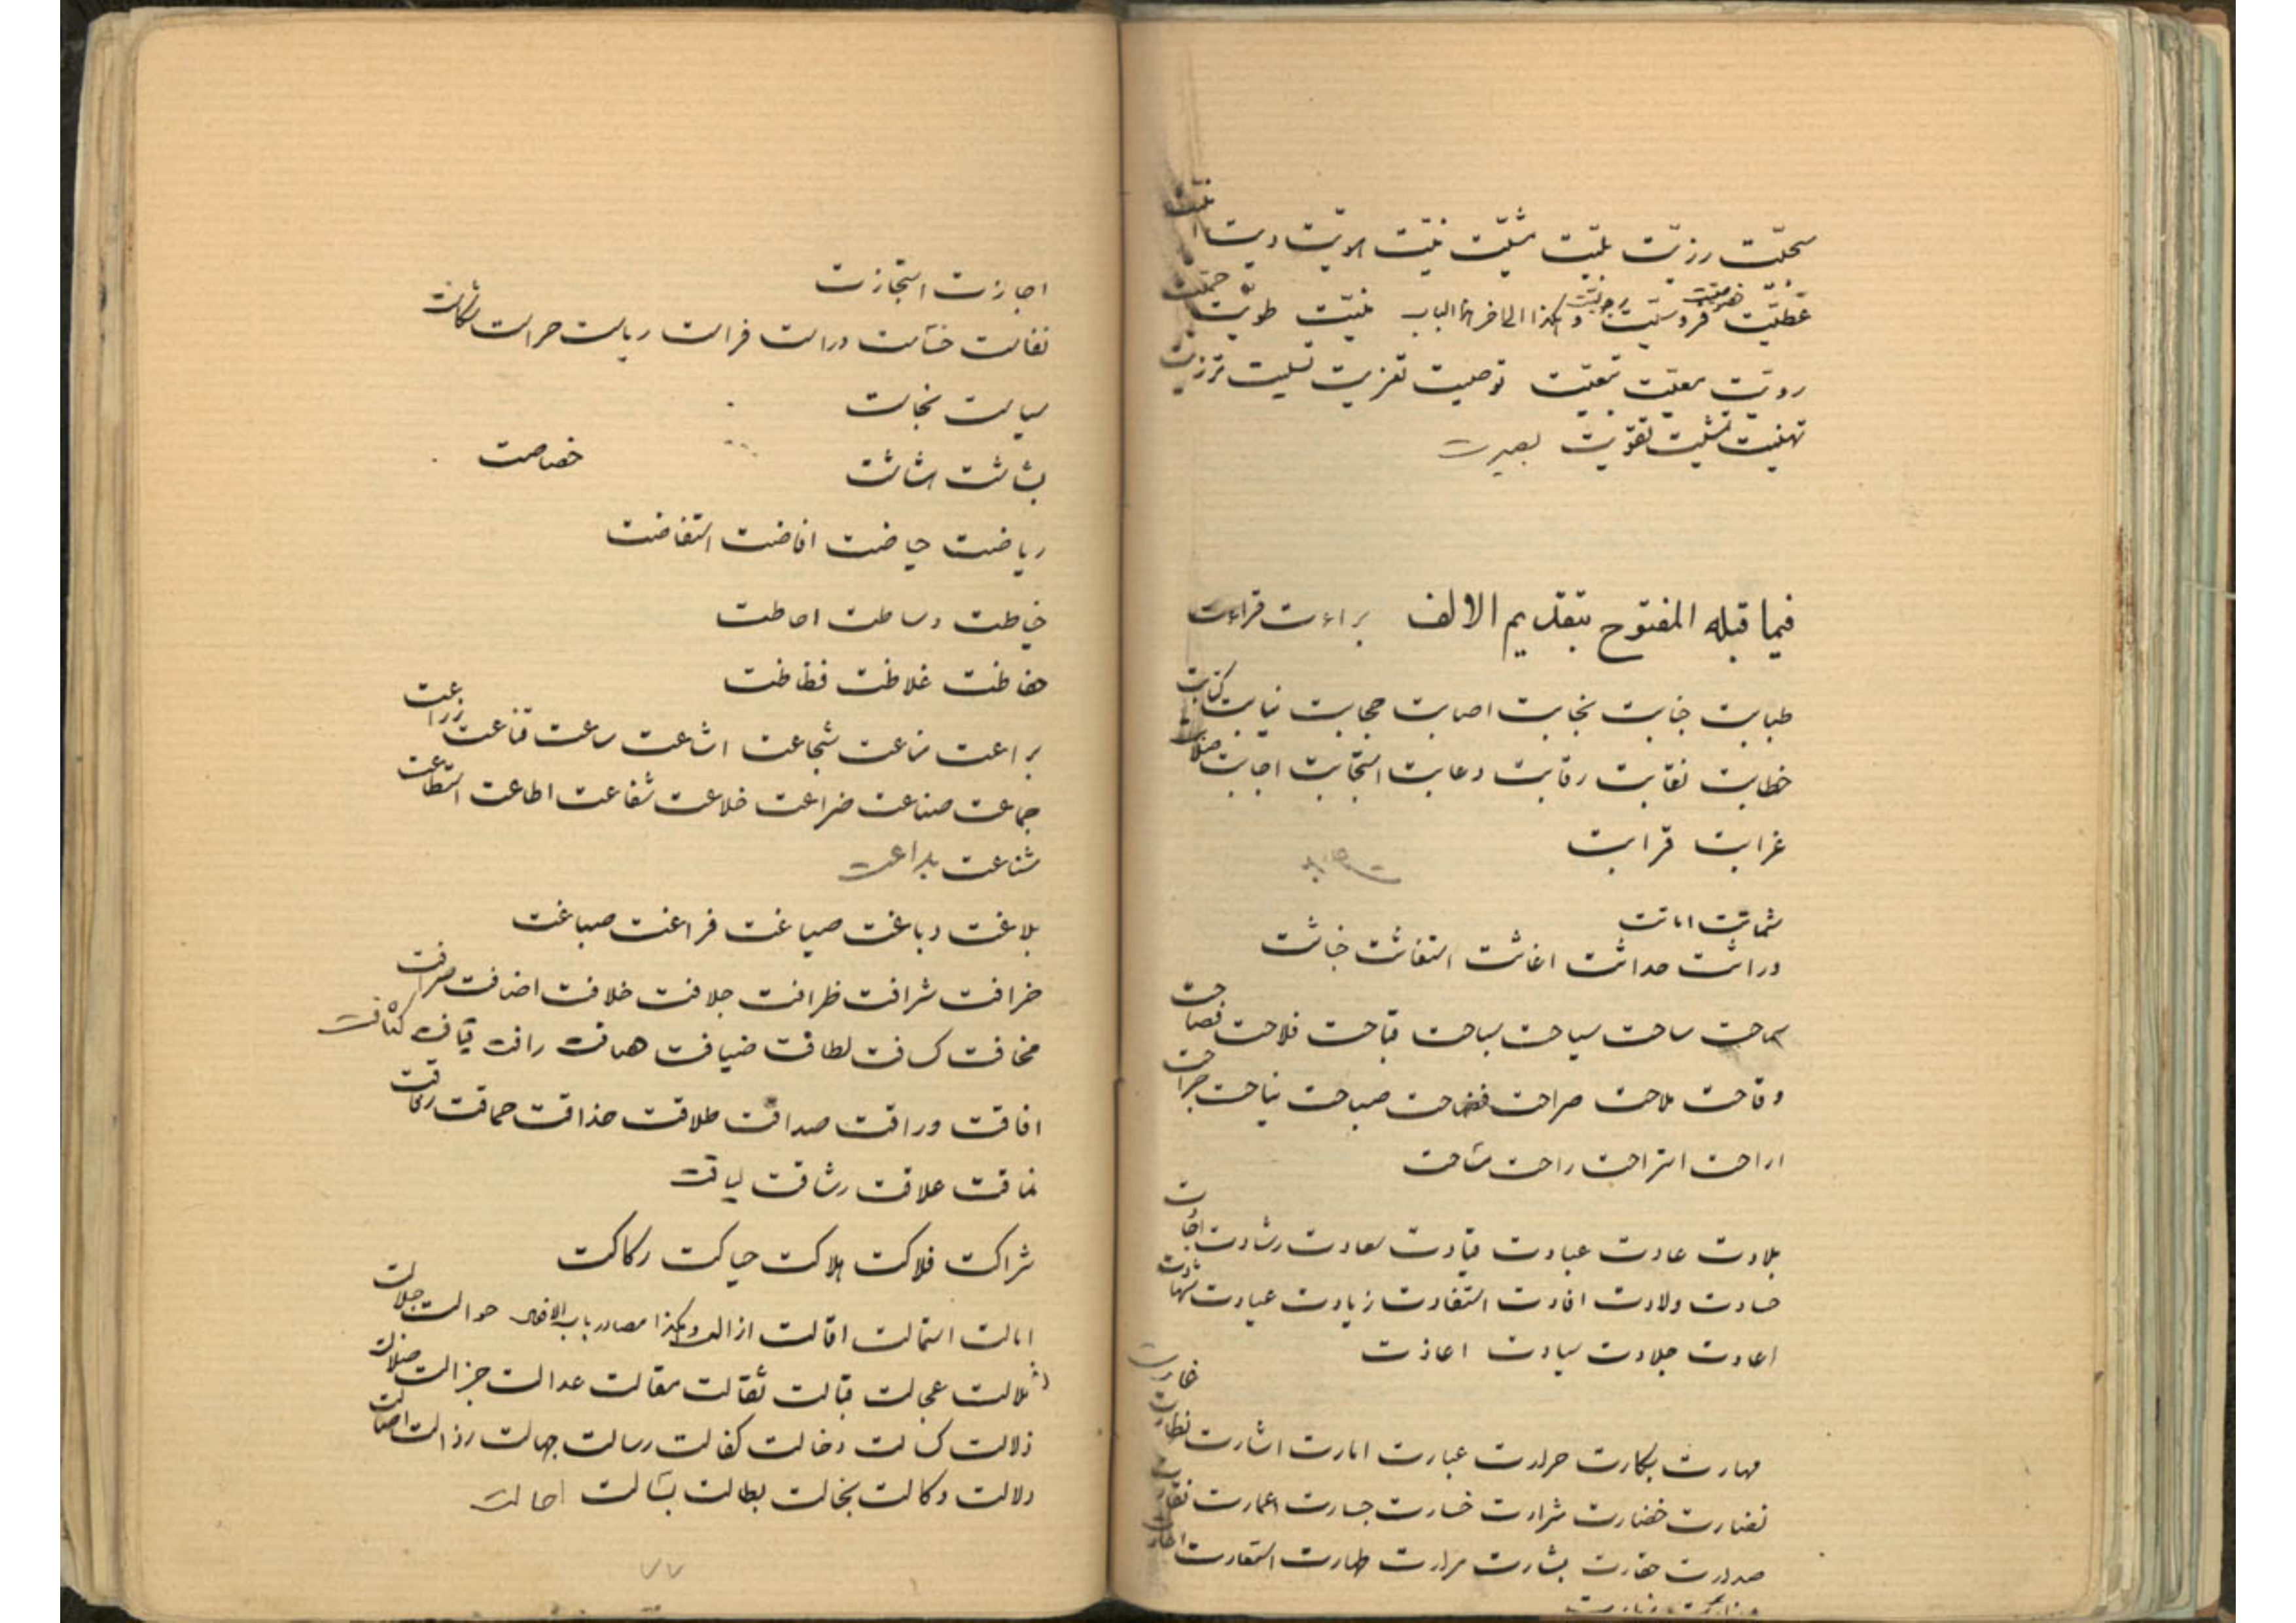 سجیّت رزیّت بلیّت مثلیّت نیّت
عطیّت فروسیّت وهکذا الی آخر هذا الباب طویّت
رویّت معیّت تبعیّت توصیت تعزیت تسلیت
تهنیت تمشیت تقویت بصیرت
فیما قبله المفتوح بتقدیم الالف براءت قراءت
طبابت جنابت نجابت اصابت حجابت نیابت کتابت
خطابت نقابت رقابت دعابت استجابت اجابت صلابت
غرابت قرابت
شماتت اماتت
وراثت حداثت اغاثت استغاثت خباثت
سماحت ساحت سیاحت سباحت قباحت فلاحت فصاحت
وقاحت ملاحت صراحت فضاحت صباحت نیاحت جراحت
اراحت استراحت راحت مساحت
بلادت عادت عبادت قیادت سعادت رشادت اجادت
ولادت افادت استفادت زیادت عیادت شهادت
اعادت جلادت سیادت اعاذت
خفارت
مهارت بکارت حرارت عبارت امارت اشارت نظارت
نضارت خضارت شرارت خسارت جسارت عمارت
صدارت حقارت بشارت مرارت طهارت استعارت
اجازت استجازت
نفاست خساست دراست فراست ریاست حراست
سیاست نجاست
بشاشت هشاشت خصاصت
ریاضت حیاضت افاضت استفاضت
خیاطت وساطت احاطت
حفاظت غلاظت فظاظت
براعت مناعت شجاعت اشاعت ساعت قناعت زراعت
جماعت صناعت ضراعت خلاعت شفاعت اطاعت استطاعت
شناعت بداعت
بلاغت دباغت صیاغت فراغت صباغت
خرافت شرافت ظرافت جلافت خلافت اضافت صرافت
مخافت کسافت لطافت ضیافت رافت قیافت کثافت
افاقت وراقت صداقت طلاقت حذاقت حماقت رفاقت
علاقت رشاقت لیاقت
شراکت فلاکت هلاکت حیاکت رکاکت
امالت استمالت اقالت ازالت وهکذا مصادر باب الافعال حوالت جلالت
عجالت قبالت ثقالت مقالت عدالت جزالت ضلالت
ذلالت کسالت دخالت کفالت رسالت جهالت رذالت اصالت
دلالت وکالت بخالت بطالت بسالت احالت
۷۷